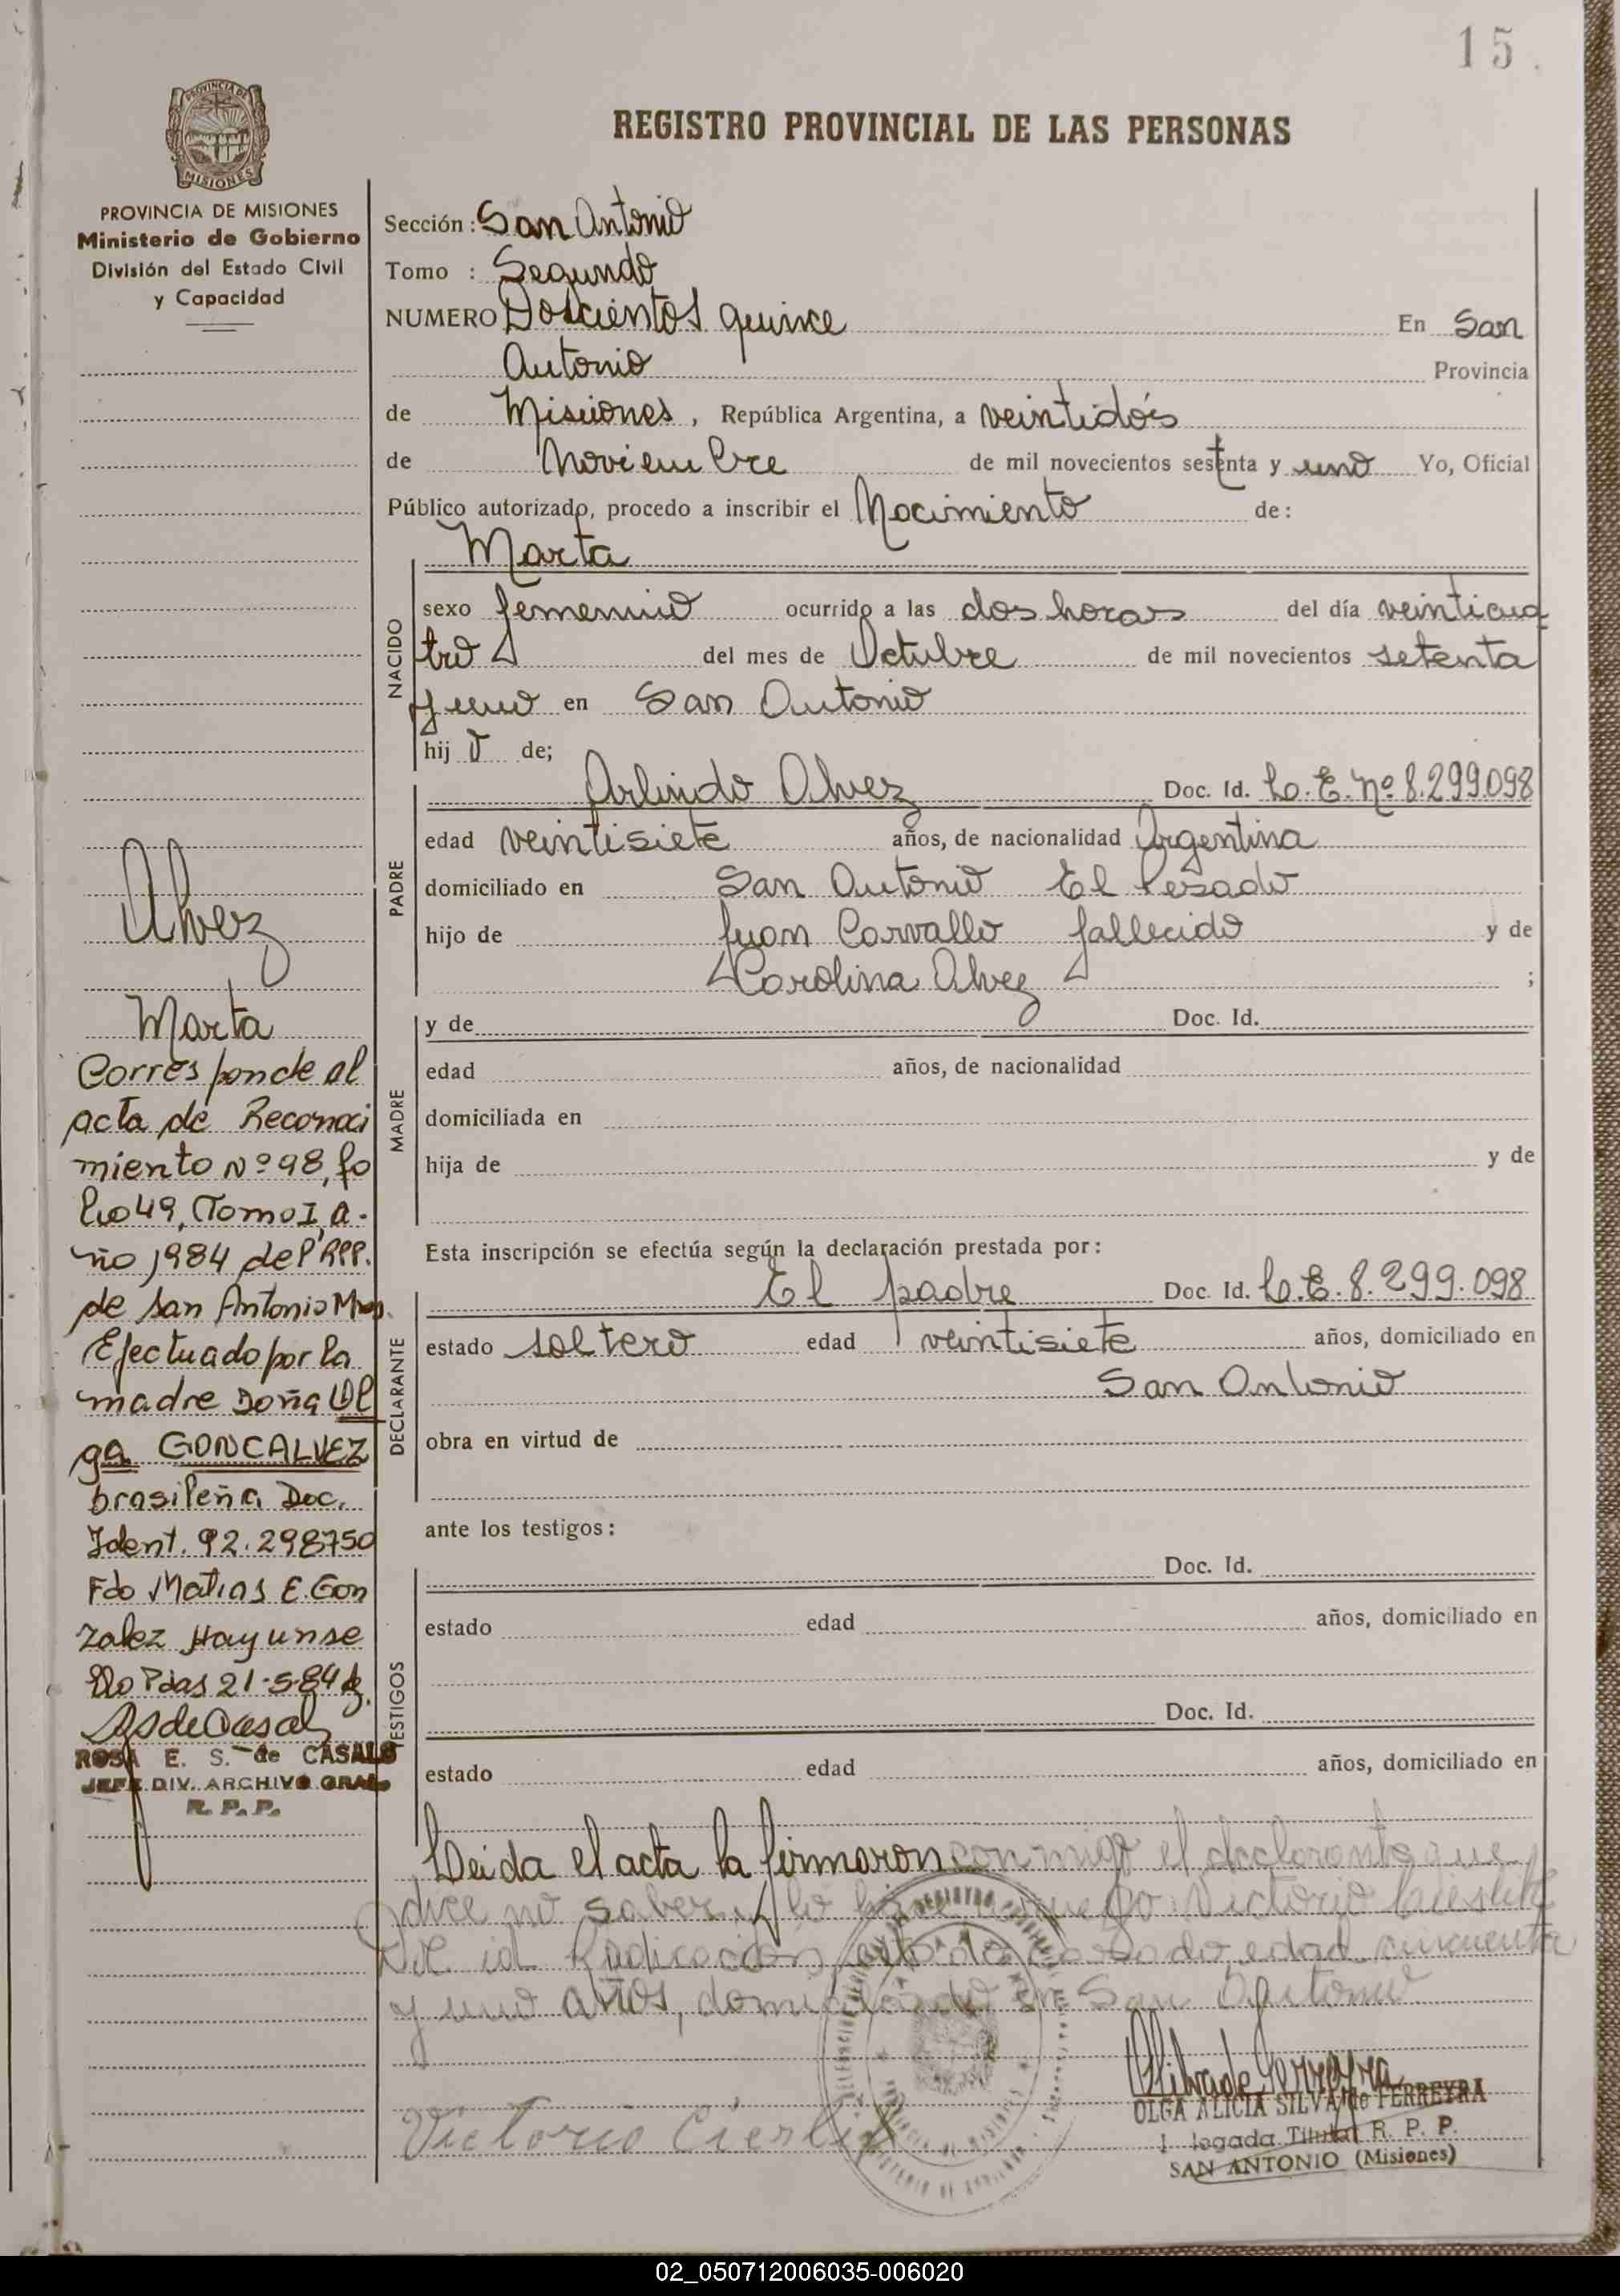 15.
PROVINCIA DE
MISIONES
REGISTRO PROVINCIAL DE LAS PERSONAS
PROVINCIA DE MISIONES
Ministerio de Gobierno
División del Estado Civil
y Capacidad
Sección: San Antonio
Tomo : Segundo
NUMERO Doscientos quince En San
Antonio Provincia
de Misiones, República Argentina, a veintidós
de Noviembre de mil novecientos sestenta y uno Yo, Oficial
Público autorizado, procedo a inscribir el Nacimiento de:
Marta
NACIDO
sexo femenino ocurrido a las dos horas del día veinticua
tro del mes de Octubre de mil novecientos setenta
y uno en San Antonio
hij a de;
PADRE
Arlindo Alvez Doc. Id. L.E. Nº 8.299.098
edad veintisiete años, de nacionalidad Argentina
domiciliado en San Antonio El Pesado
hijo de Juan Carvallo fallecido y de
Carolina Alvez ;
MADRE
y de Doc. Id.
edad años, de nacionalidad
domiciliada en
hija de y de
Esta inscripción se efectúa según la declaración prestada por:
DECLARANTE
El padre Doc. Id. L.E. 8.299.098
estado soltero edad veintisiete años, domiciliado en
San Antonio
obra en virtud de
ante los testigos:
TESTIGOS
Doc. Id.
estado edad años, domiciliado en
Doc. Id.
estado edad años, domiciliado en
Leida el acta la firmaron conmigo el declarante que
dice no saber, lo hace a ruego Victorio
id. Radicación, estado casado, edad cincuenta
y uno años, domiciliado en San Antonio
Victorio
OLGA ALICIA SILVA de FERREYRA
Delegada Titular R. P. P.
SAN ANTONIO (Misiones)
Alvez
Marta
Corresponde al
acta de Reconoci
miento Nº 98, fo
lio 49, Tomo I, a-
ño 1984 del RPP.
de San Antonio Mnes.
Efectuado por la
madre Doña Ol
ga GONCALVEZ
brasileña Doc.
Ident. 92.298750
Fdo Matias E. Gon
zalez Hay un se
llo Pdas 21-5-84
ROSA E. S. de CASALS
JEFE DIV. ARCHIVO GRAL.
R. P. P.
02_050712006035-006020